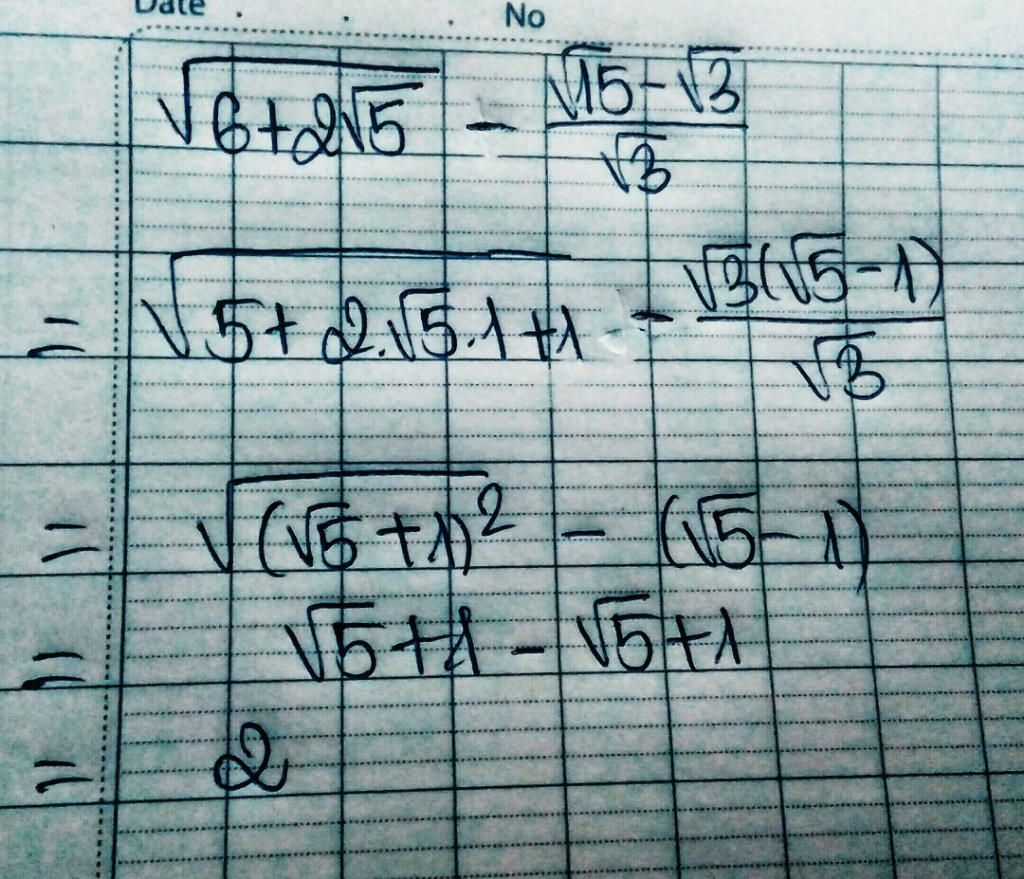 Date . . . No
√(6+2√5) - (√15-√3)/√3
= √(5+2.√5.1+1) - √3(√5-1)/√3
= √((√5+1)²) - (√5-1)
= √5+1-√5+1
= 2